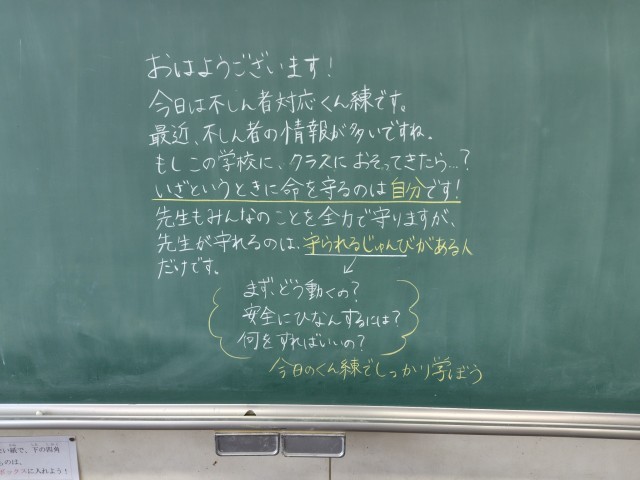 おはようございます!
今日は不しん者対応くん練です。
最近、不しん者の情報が多いですね。
もしこの学校に、クラスにおそってきたら…?
いざというときに命を守るのは自分です!
先生もみんなのことを全力で守りますが、
先生が守れるのは、守られるじゅんびがある人
だけです。
まず、どう動くの?
安全にひなんするには?
何をすればいいの?
今日のくん練でしっかり学ぼう
い紙で、下の四角
ものは、
ボックスに入れよう!